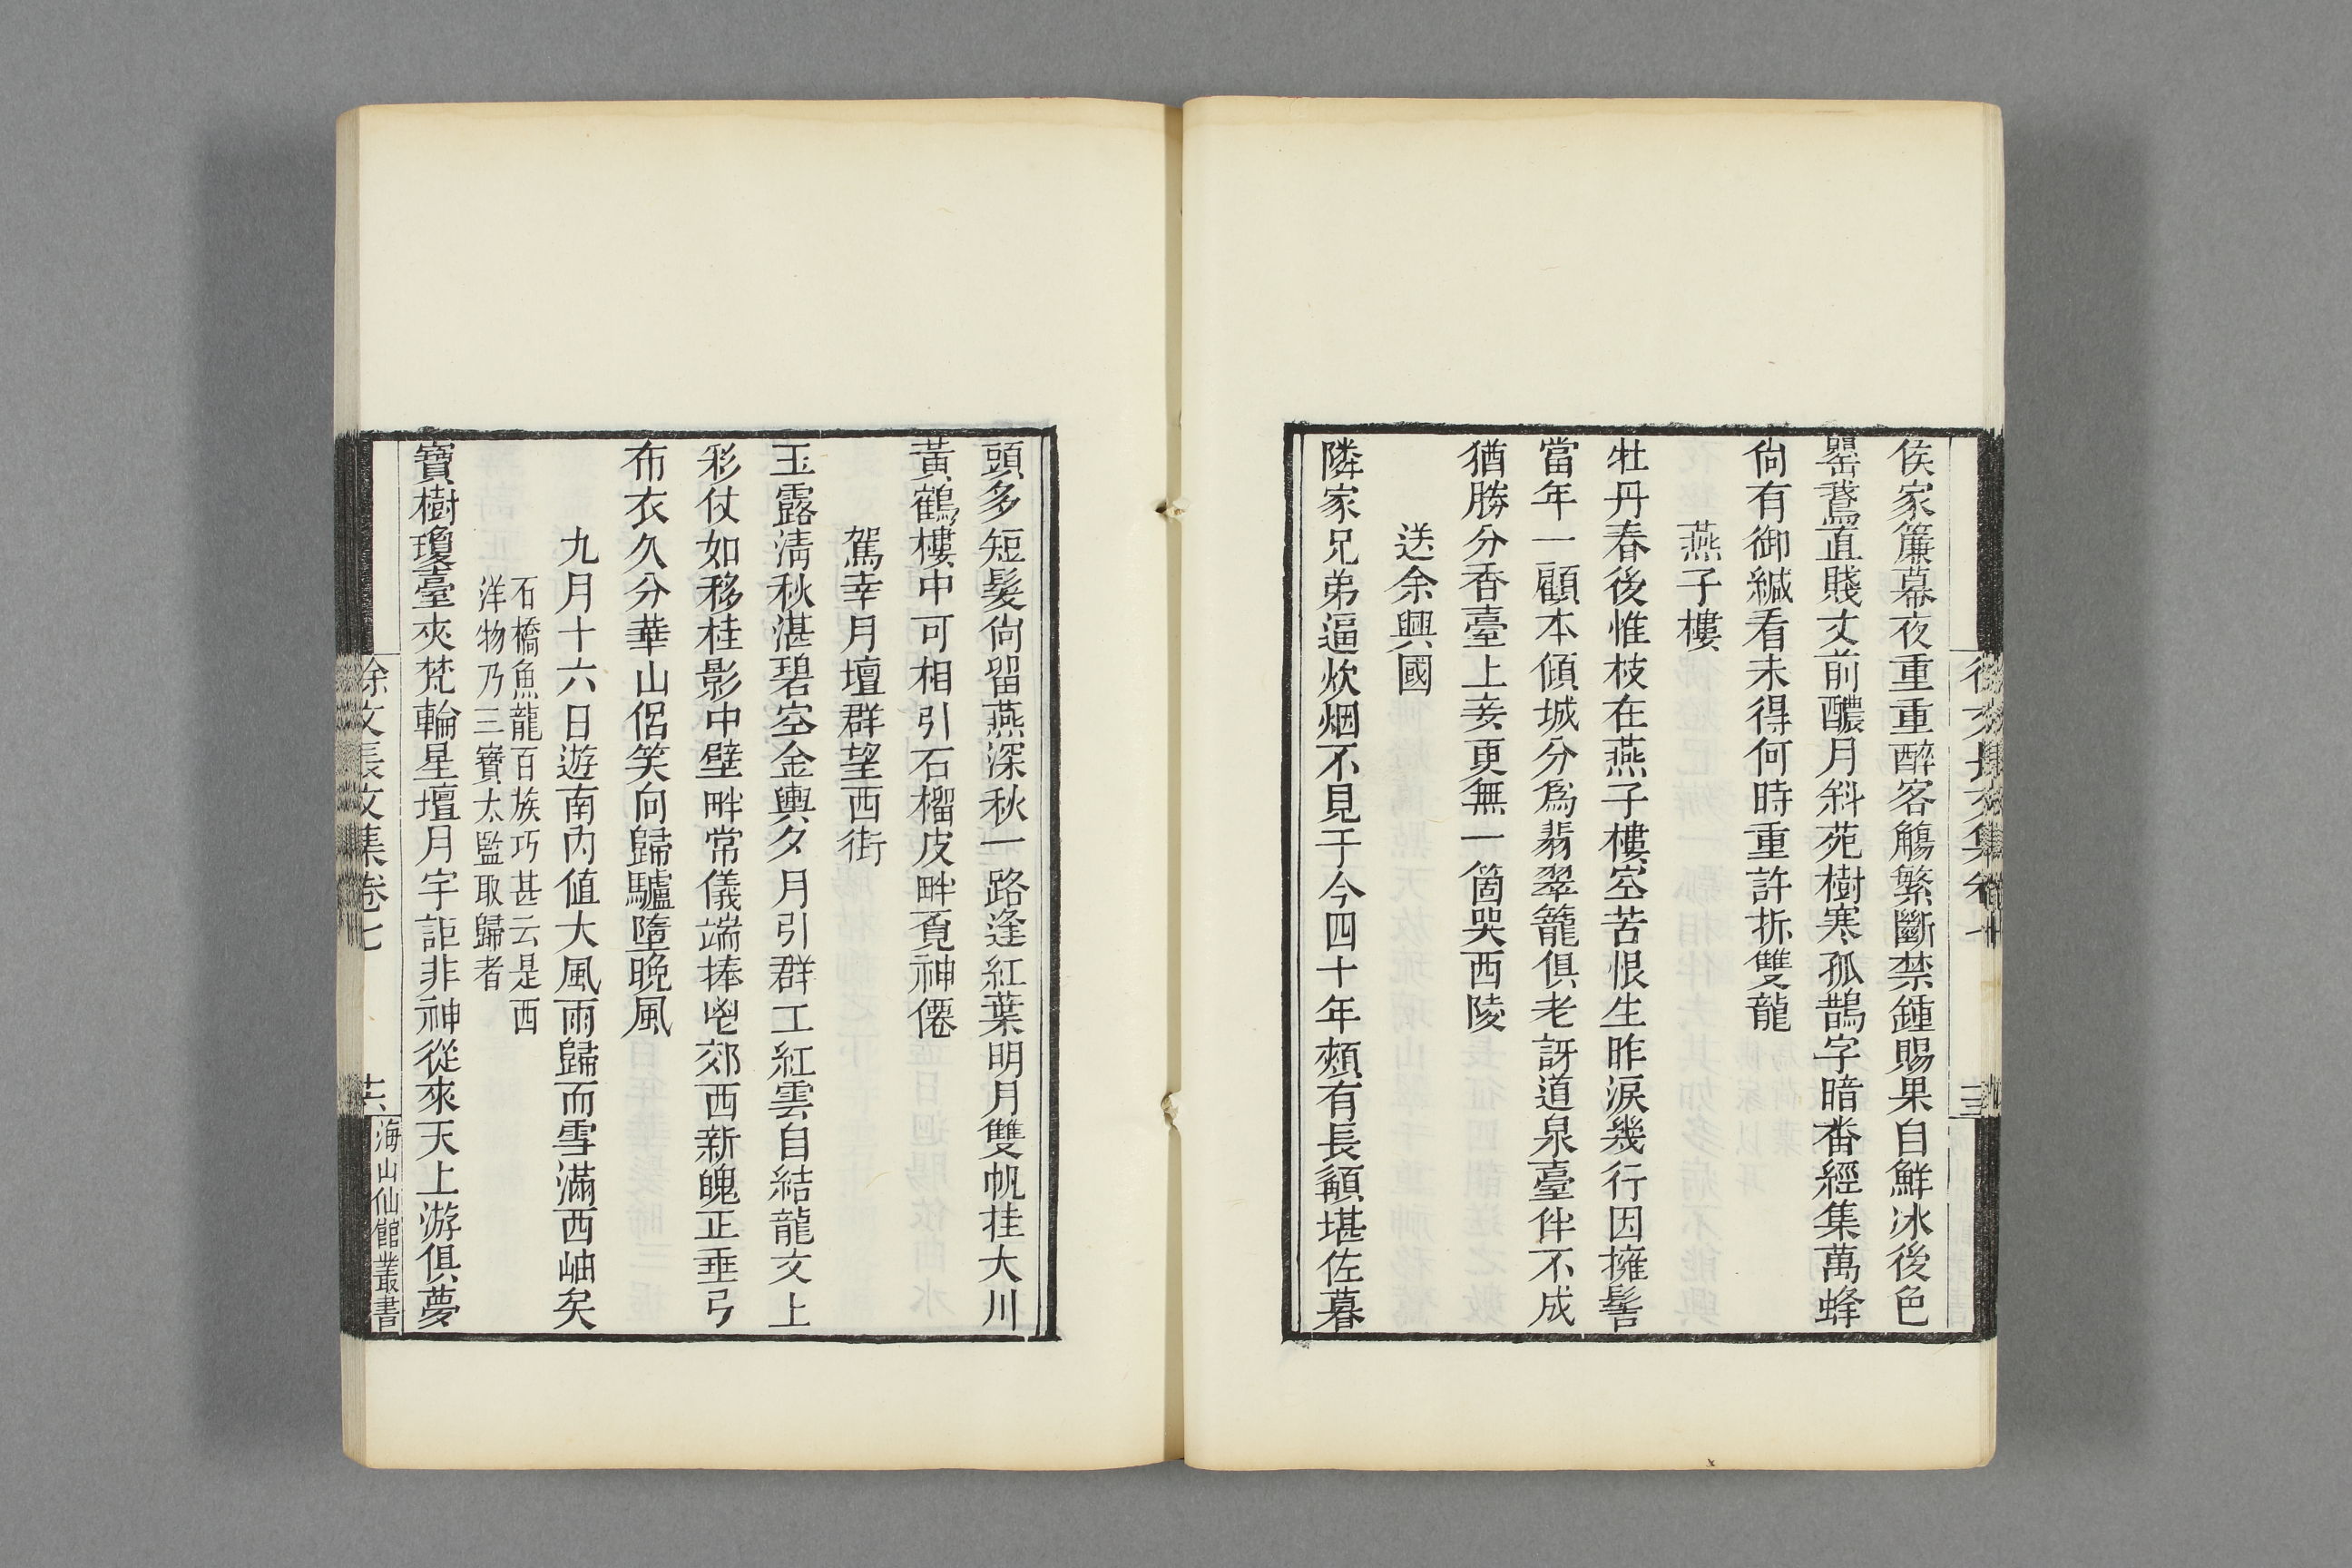 侯家簾幕夜重重醉客觴繁斷禁鍾賜果自鮮冰後色
罌鵞直賤文前醲月斜苑樹寒孤鵲字暗畨經集萬蜂
尙有御緘看未得何時重許拆雙龍
燕子樓
牡丹春後惟枝在燕子樓空苦恨生昨淚幾行因擁髻
當年一顧本傾城分爲翡翠籠俱老訝道泉臺伴不成
猶勝分香臺上妾更無一箇哭西陵
送余興國
隣家兄弟逼炊烟不見于今四十年頰有長顬堪佐暮
頭多短髮尙留燕深秋一路逢紅葉明月雙帆挂大川
黃鶴樓中可相引石榴皮畔覔神僊
駕幸月壇群望西街
玉露淸秋湛碧空金輿夕月引群工紅雲自結龍文上
彩仗如移桂影中壁畔常儀端捧鬯郊西新魄正垂弓
布衣久分華山侶笑向歸驢墮晚風
九月十六日遊南內値大風雨歸而雪滿西岫矣
石橋魚龍百族巧甚云是西
洋物乃三寶太監取歸者
寶樹瓊臺夾梵輪星壇月宇詎非神從來天上游俱夢
徐文長文集卷七
十六
海山仙館叢書